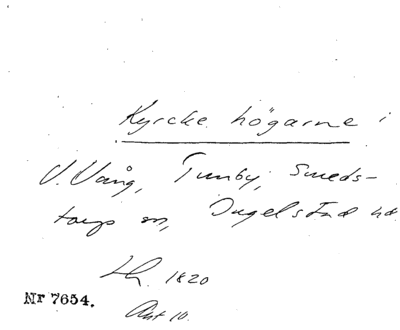 Kyrcke högarne i
V. Vång, Tumby, Smeds-
torps sn, Ingelstad hd.
1820
Nr 7654.
Ant 10.